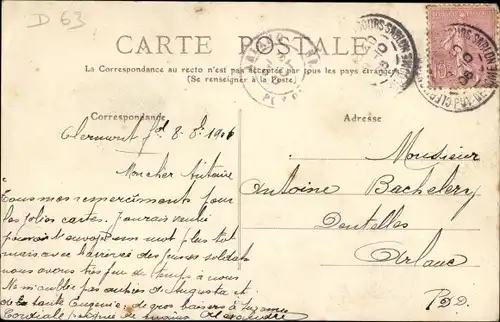 D 63
CARTE POSTALE
La Correspondance au recto n'est pas acceptée par tous les pays étrangers
(Se renseigner à la Poste)
Correspondance
Adresse
Clermont fd 8-8-1906
Mon cher Antoine
Tous mes remerciements pour
les jolies cartes. J'aurais voulu
pouvoir t'envoyer un mot plus tôt
mais avec l'arrivée des soldats
nous avons très peu de temps à nous
N'oublie pas Augusta et
de la tante Eugénie, de gros baisers à Suzanne
Cordiale poignée de mains Alexandre
Monsieur
Antoine Bachelery
Dentelles
Arlanc
P.D.D.